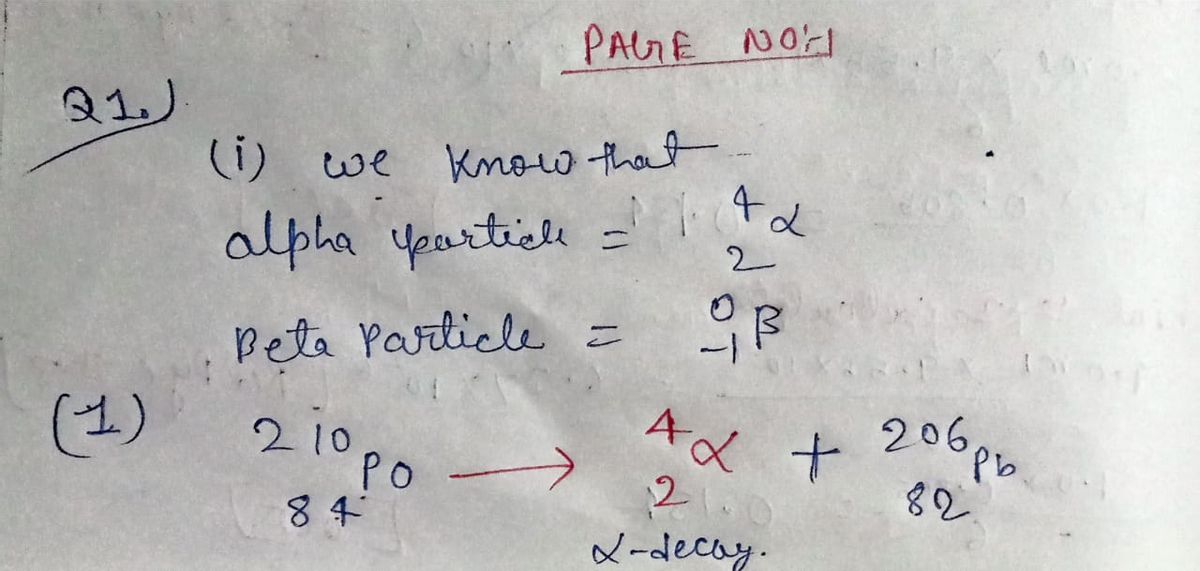 PAGE NO:-1
Q1.)
(i) we know that
alpha particle = ⁴₂α
Beta Particle = ⁰₋₁β
(1) ²¹⁰₈₄Po ⟶ ⁴₂α + ²⁰⁶₈₂Pb
α-decay.